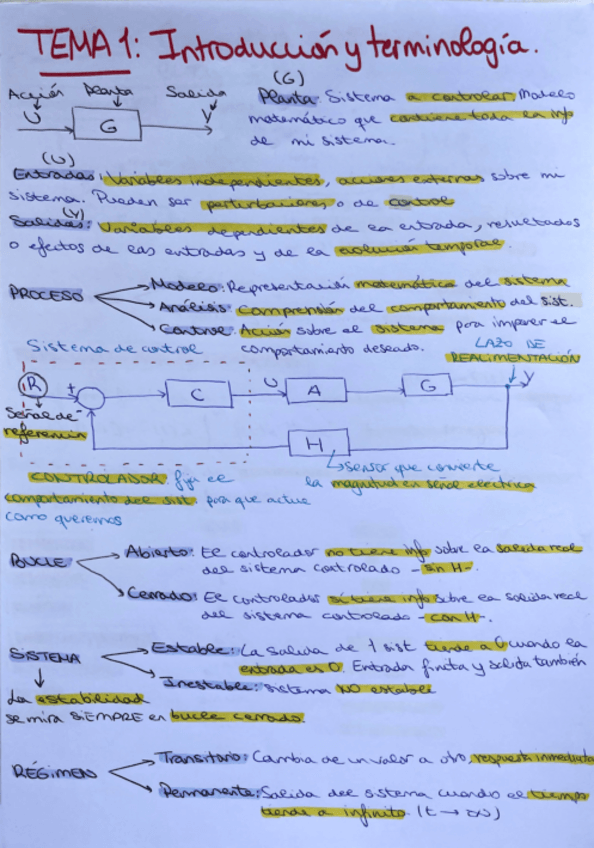 TEMA 1: Introducción y terminología.
Acción Planta Salida
U G Y
(G)
Planta: Sistema a controlar. Modelo
matemático que contiene toda la info
de mi sistema.
(U)
Entradas: Variables independientes, acciones externas sobre mi
sistema. Pueden ser perturbaciones o de control
(Y)
Salidas: Variables dependientes de la entrada, resultados
o efectos de las entradas y de la evolución temporal.
PROCESO
Modelo: Representación matemática del sistema
Análisis: Comprensión del comportamiento del sist.
Control: Acción sobre el sistema para imponer el
comportamiento deseado.
Sistema de control
LAZO DE
REALIMENTACIÓN
R + C U A G Y
Señal de
referencia
H
sensor que convierte
la magnitud en señal eléctrica
CONTROLADOR: fija el
comportamiento del sist. para que actúe
como queremos
BUCLE
Abierto: El controlador no tiene info sobre la salida real
del sistema controlado - sin H -.
Cerrado: El controlador sí tiene info sobre la salida real
del sistema controlado - con H -.
SISTEMA
Estable: La salida de 1 sist tiende a 0 cuando la
entrada es 0. Entrada finita y salida también
Inestable: sistema NO estable
La estabilidad
se mira SIEMPRE en bucle cerrado.
RÉGIMEN
Transitorio: Cambia de un valor a otro, respuesta inmediata
Permanente: Salida del sistema cuando el tiempo
tiende a infinito. (t → ∞)